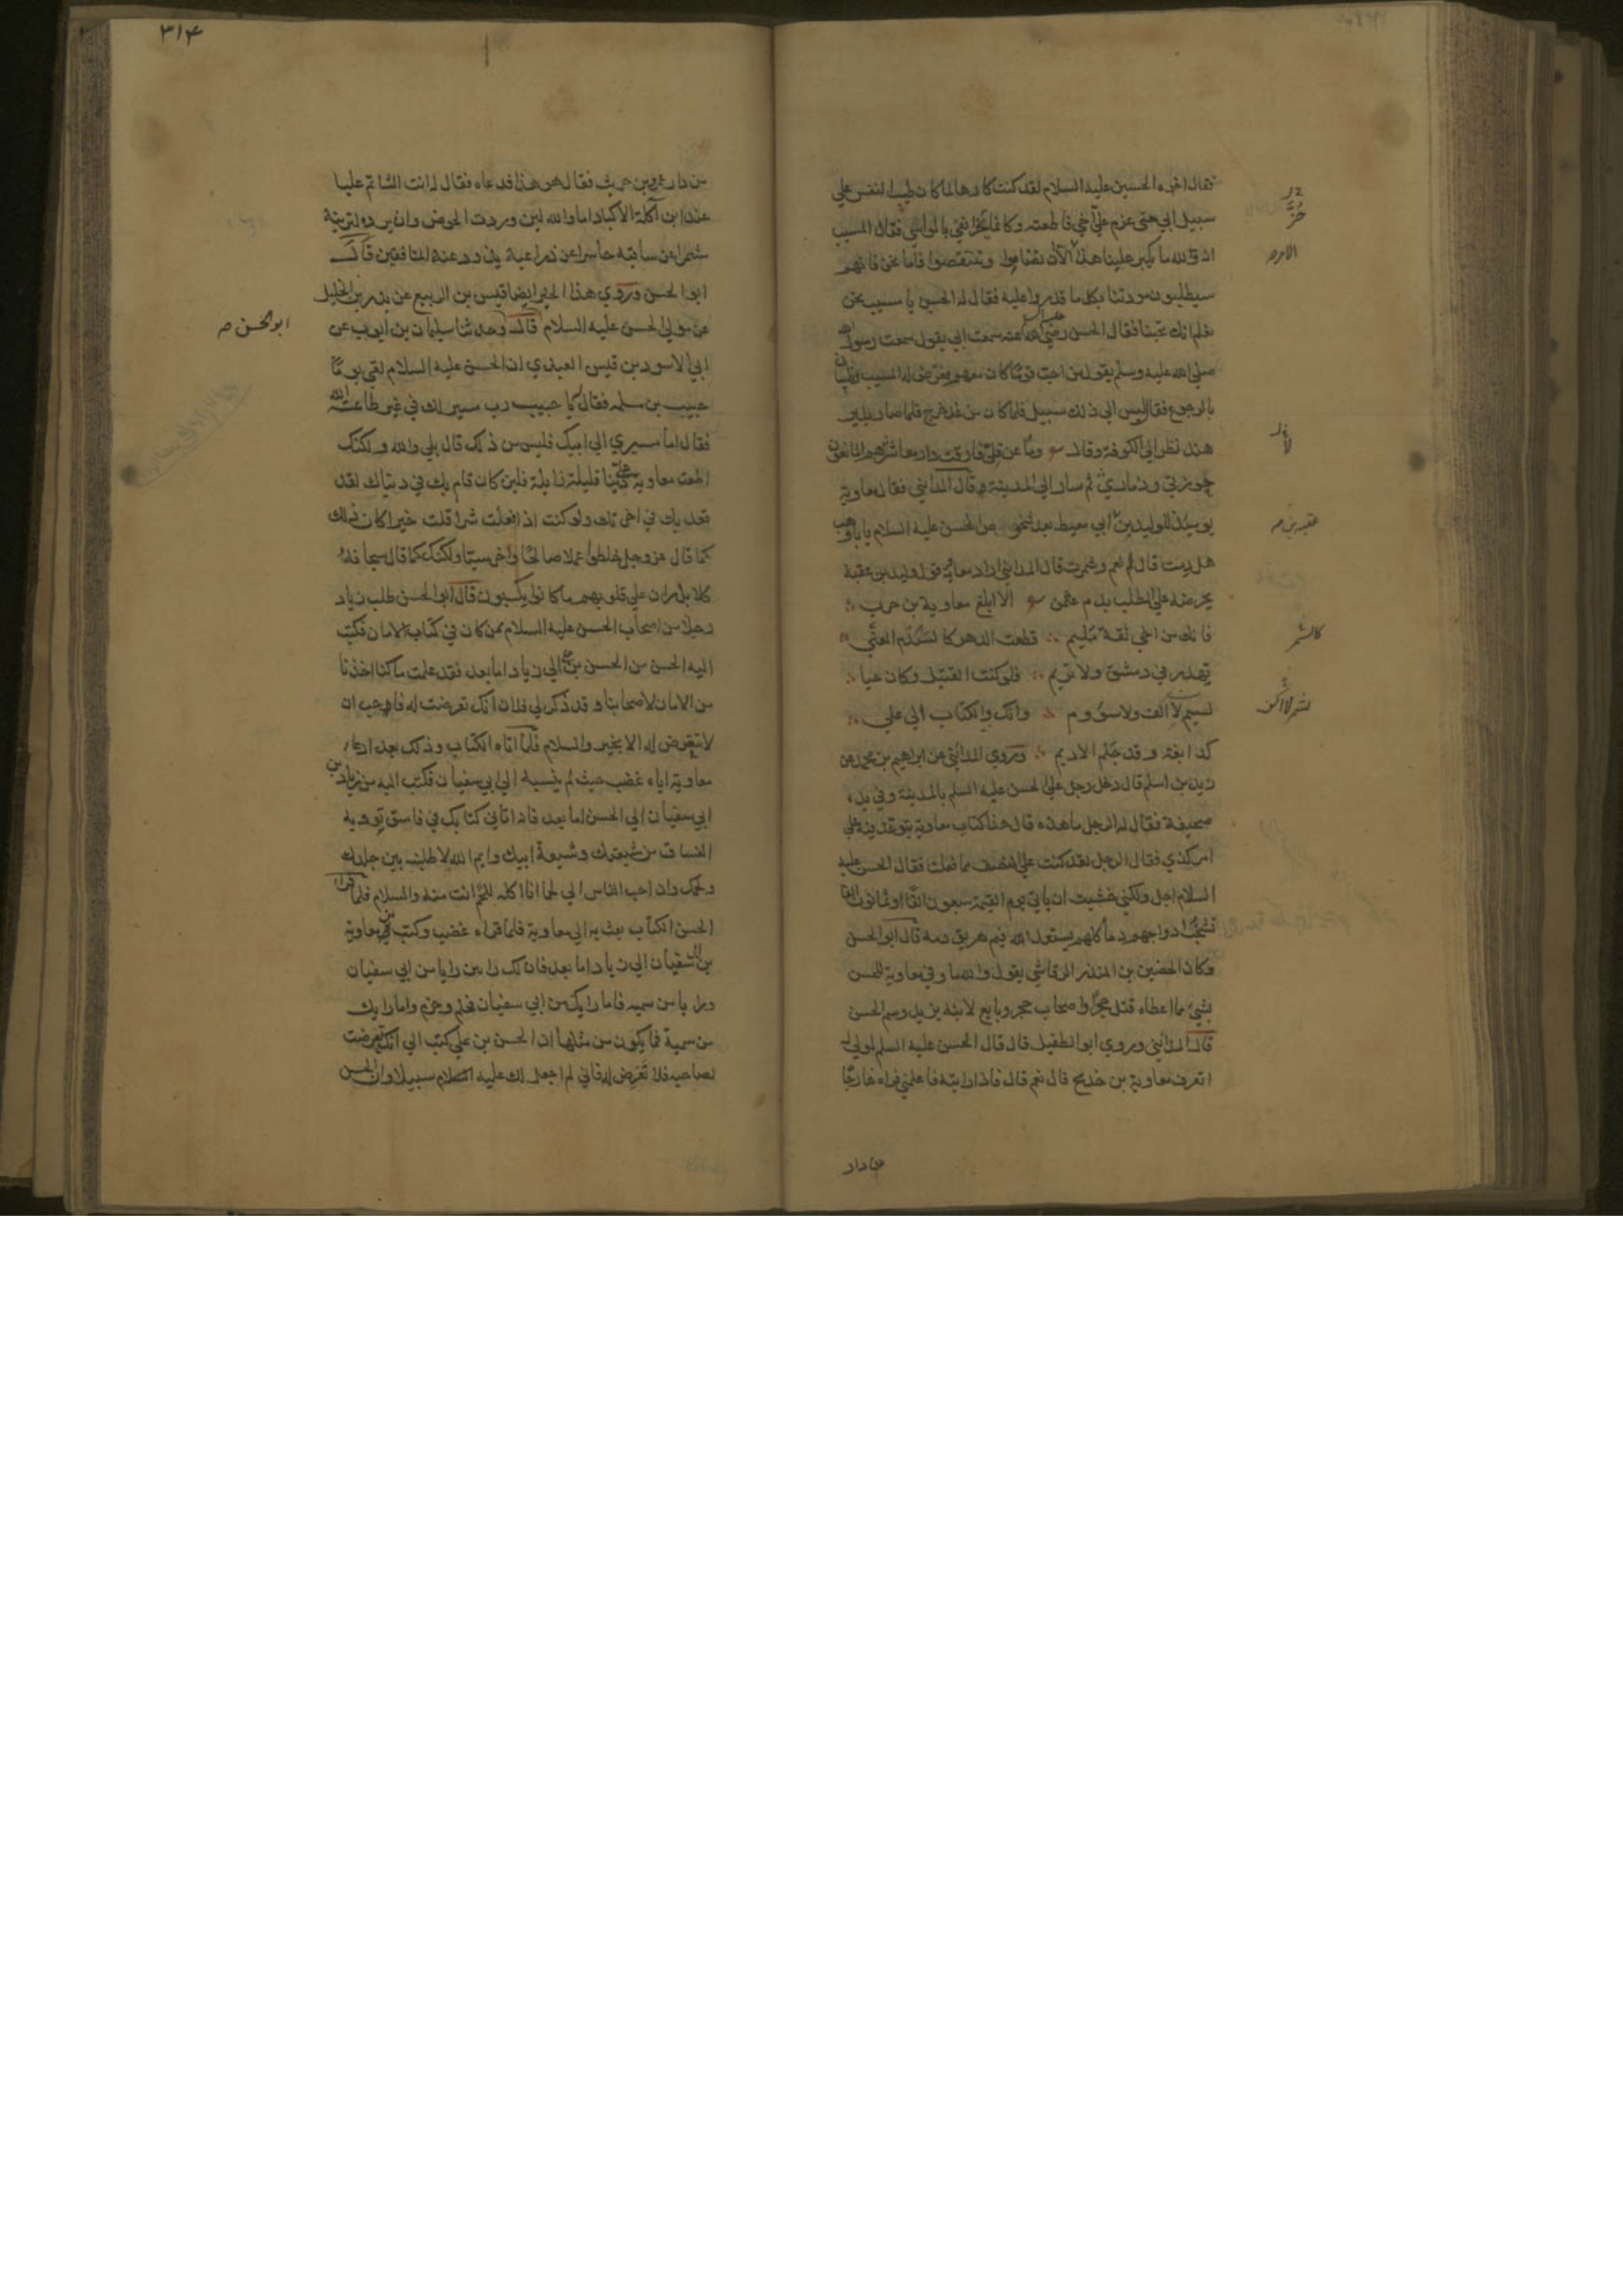 فقال اخوه الحسين عليه السلام لقد كنت كارها لما كان طيب النفس علي
سبيل ابي حتى عزم علي اخي فاطعته وكانما يحز انفي بالمواسي فقال المسيب
انه والله ما يكبر علينا هذا الا ان تضاموا وتنتقصوا فاما نحن فانهم
سيطلبون مودتنا بكل ما قدروا عليه فقال له الحسين يا مسيب نحن
نعلم انك تحبنا فقال الحسن رضي الله عنه سمعت ابي يقول سمعت رسول الله
صلى الله عليه وسلم يقول من احب قوما كان معهم فعرض له المسيب وظبيان
بالرجوع فقال ليس الى ذلك سبيل فلما كان من غد خرج فلما صار بدير
هند نظر الى الكوفة وقال وما عن قلى فارقت دار معاشري هم المانعون
حوزتي وذماري ثم سار الى المدينة وقال المدايني فقال معاوية
يومئذ للوليد بن ابي معيط بعد شخوص الحسن عليه السلام يا با وهب
هل رمت قال نعم وسمرت قال المدايني اراد معاوية قول وليد بن عقبة
يحرضه على الطلب بدم عثمن الا ابلغ معاوية بن حرب
فانك من اخي ثقة مليم قطعت الدهر كالسدم المعنى
تهدر في دمشق ولا تريم فلو كنت القتيل وكان حيا
لشمر لا الف ولا سؤوم وانك والكتاب الى علي
كدابغة وقد حلم الاديم وروي المدايني عن ابراهيم بن محمد عن
زيد بن اسلم قال دخل رجل على الحسن عليه السلم بالمدينة وفي يده
صحيفة فقال له الرجل ما هذه قال هذا كتاب معاوية يتوعد فيه على
امر كذي فقال الرجل لقد كنت على النصف مما فعلت فقال الحسن عليه
السلام اجل ولكني خشيت ان ياتي يوم القيمة سبعون الفا او ثمانون الفا
تشخب اوداجهم دما كلهم يستعدا الله فيم هريق دمه قال ابو الحسن
وكان الحضين بن المنذر الرقاشي يقول والله ما وفي معاوية للحسن
بشيء مما اعطاه قتل حجرا واصحاب حجر وبايع لابنه يزيد وسم الحسن
قال المدايني وروي ابو الطفيل قال قال الحسن عليه السلم لمولى له
اتعرف معاوية بن خديج قال نعم قال فاذا رايته فاعلمني فراه خارجا
من دار
عقبة بن
كالسدم
٣١٤
من دار عمرو بن حريث فقال هو هذا فدعاه فقال له انت الشاتم عليا
عند ابن آكلة الاكباد اما والله لئن وردت الحوض وان ترده لترينه
مشمرا عن ساقيه حاسرا عن ذراعيه يذود عنه المنافقين قال
ابو الحسن وروي هذا الخبر ايضا قيس بن الربيع عن بدر بن الخليل
عن مولى الحسن عليه السلام قال وحدثنا سليمان بن ايوب عن
ابي الاسود بن قيس العبدي ان الحسن عليه السلام لقي يوما
حبيب بن مسلمه فقال يا حبيب رب مسير لك في غير طاعة الله
فقال اما مسيري الى ابيك فليس من ذلك قال بلى والله ولكنك
اطعت معاوية على دنيا قليلة زايلة فلئن كان قام بك في دنياك لقد
قعد بك في اخرتك ولو كنت اذ فعلت شرا قلت خيرا كان ذلك
كما قال عز وجل خلطوا عملا صالحا واخر سيئا ولكنك كما قال سبحانه
كلا بل ران على قلوبهم ما كانوا يكسبون قال ابو الحسن طلب زياد
رجلا من اصحاب الحسن عليه السلام ممن كان في كتاب الامان فكتب
اليه الحسن من الحسن بن علي الى زياد اما بعد فقد علمت ما كنا اخذنا
من الامان لاصحابنا وقد ذكر لي فلان انك تعرضت له فاحب ان
لا تعرض له الا بخير والسلام فلما اتاه الكتاب وذلك بعد ادعاء
معاوية اياه غضب حيث لم ينسبه الى ابي سفيان فكتب اليه من زياد بن
ابي سفيان الى الحسن اما بعد فانه اتاني كتابك في فاسق تؤويه
الفساق من شيعتك وشيعة ابيك وايم الله لاطلبنه بين جلدك
ولحمك وان احب الناس الي لحما انا اكله للحم انت منه والسلام فلما قرا
الحسن الكتاب بعث به الى معاوية فلما قراه غضب وكتب من معاوية
بن ابي سفيان الى زياد اما بعد فان لك رايين رايا من ابي سفيان
ورايا من سميه فاما رايك من ابي سفيان فحلم وحزم واما رايك
من سمية فما يكون من مثلها ان الحسن بن علي كتب الي انك تعرضت
لصاحبه فلا تعرض له فاني لم اجعل لك عليه سبيلا وان الحسن
ابو الحسن صـ